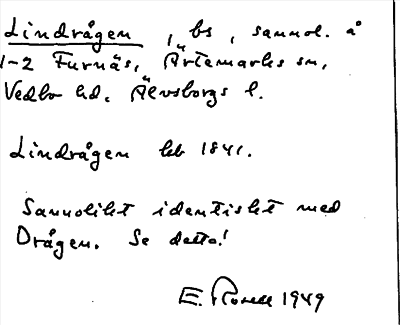 Lindrågen, bs, sannol. å
1-2 Furnäs, Ärtemarks sn,
Vedbo hd. Älvsborgs l.
Lindrågen hb 1841.
Sannolikt identiskt med
Drågen. Se detta!
E. Rosell 1949